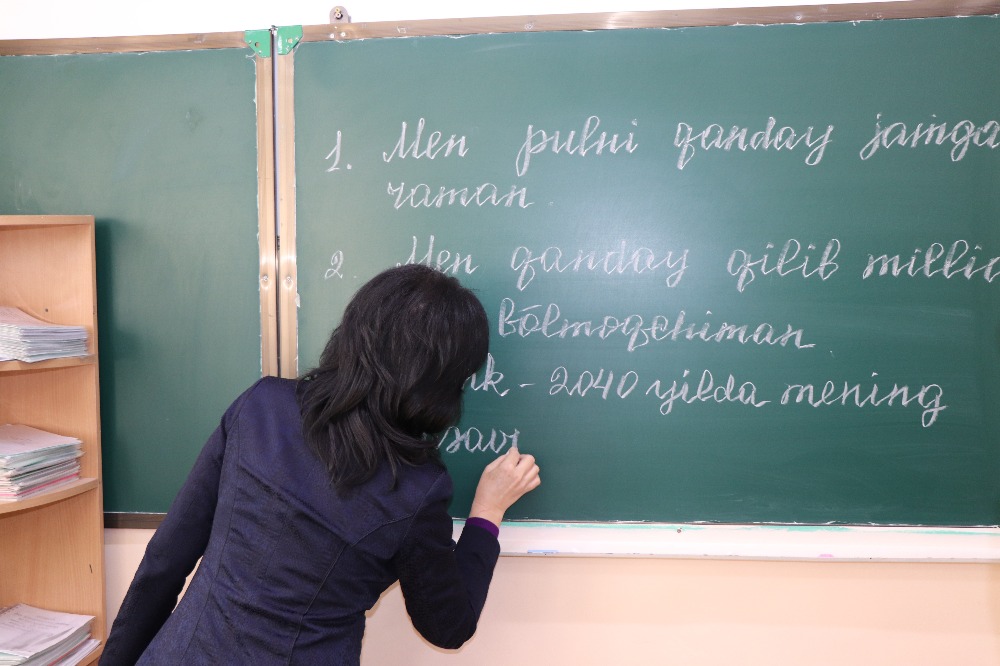 1. Men pulni qanday jamga
raman.
2. Men qanday qilib millio
bólmoqchiman
nk - 2040 yilda mening
savi